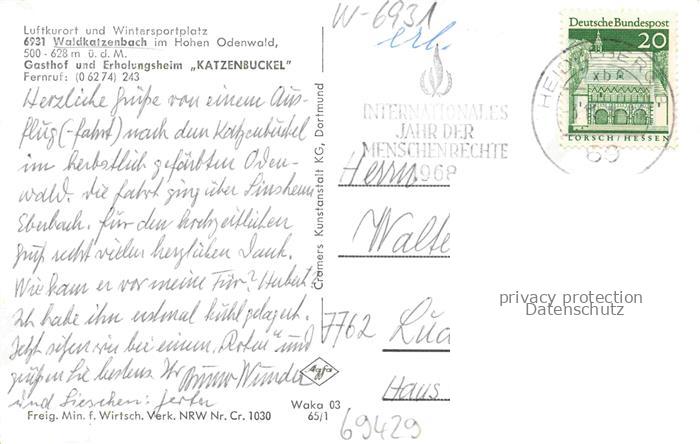 Luftkurort und Wintersportplatz
6931 Waldkatzenbach im Hohen Odenwald,
500 - 628 m ü. d. M.
Gasthof und Erholungsheim „KATZENBUCKEL"
Fernruf: (0 62 74) 243
Herzliche Grüße von einem Aus-
flug (-fahrt) nach dem Katzenbuckel
im herbstlich gefärbten Oden-
wald. Die Fahrt ging über Sinsheim
Eberbach. Für den hochzeitlichen
Gruß recht vielen herzlichen Dank.
Wie kam er vor meine Tür? Hubert
Ich habe ihn erstmal kühl gelagert.
Jetzt sitzen wir bei einem und
grüßen Sie bestens Ihr Bruno Wunder
und Lieschen:
Freig. Min. f. Wirtsch. Verk. NRW Nr. Cr. 1030
Waka 03
65/1
Agfa
Cramers Kunstanstalt KG, Dortmund
W-6931
erl.
INTERNATIONALES
JAHR DER
MENSCHENRECHTE
1968
Deutsche Bundespost
20
LORSCH/HESSEN
HEIDELBERG
xb
69
Herrn
Walte
7762 Lud
Haus
69429
privacy protection
Datenschutz